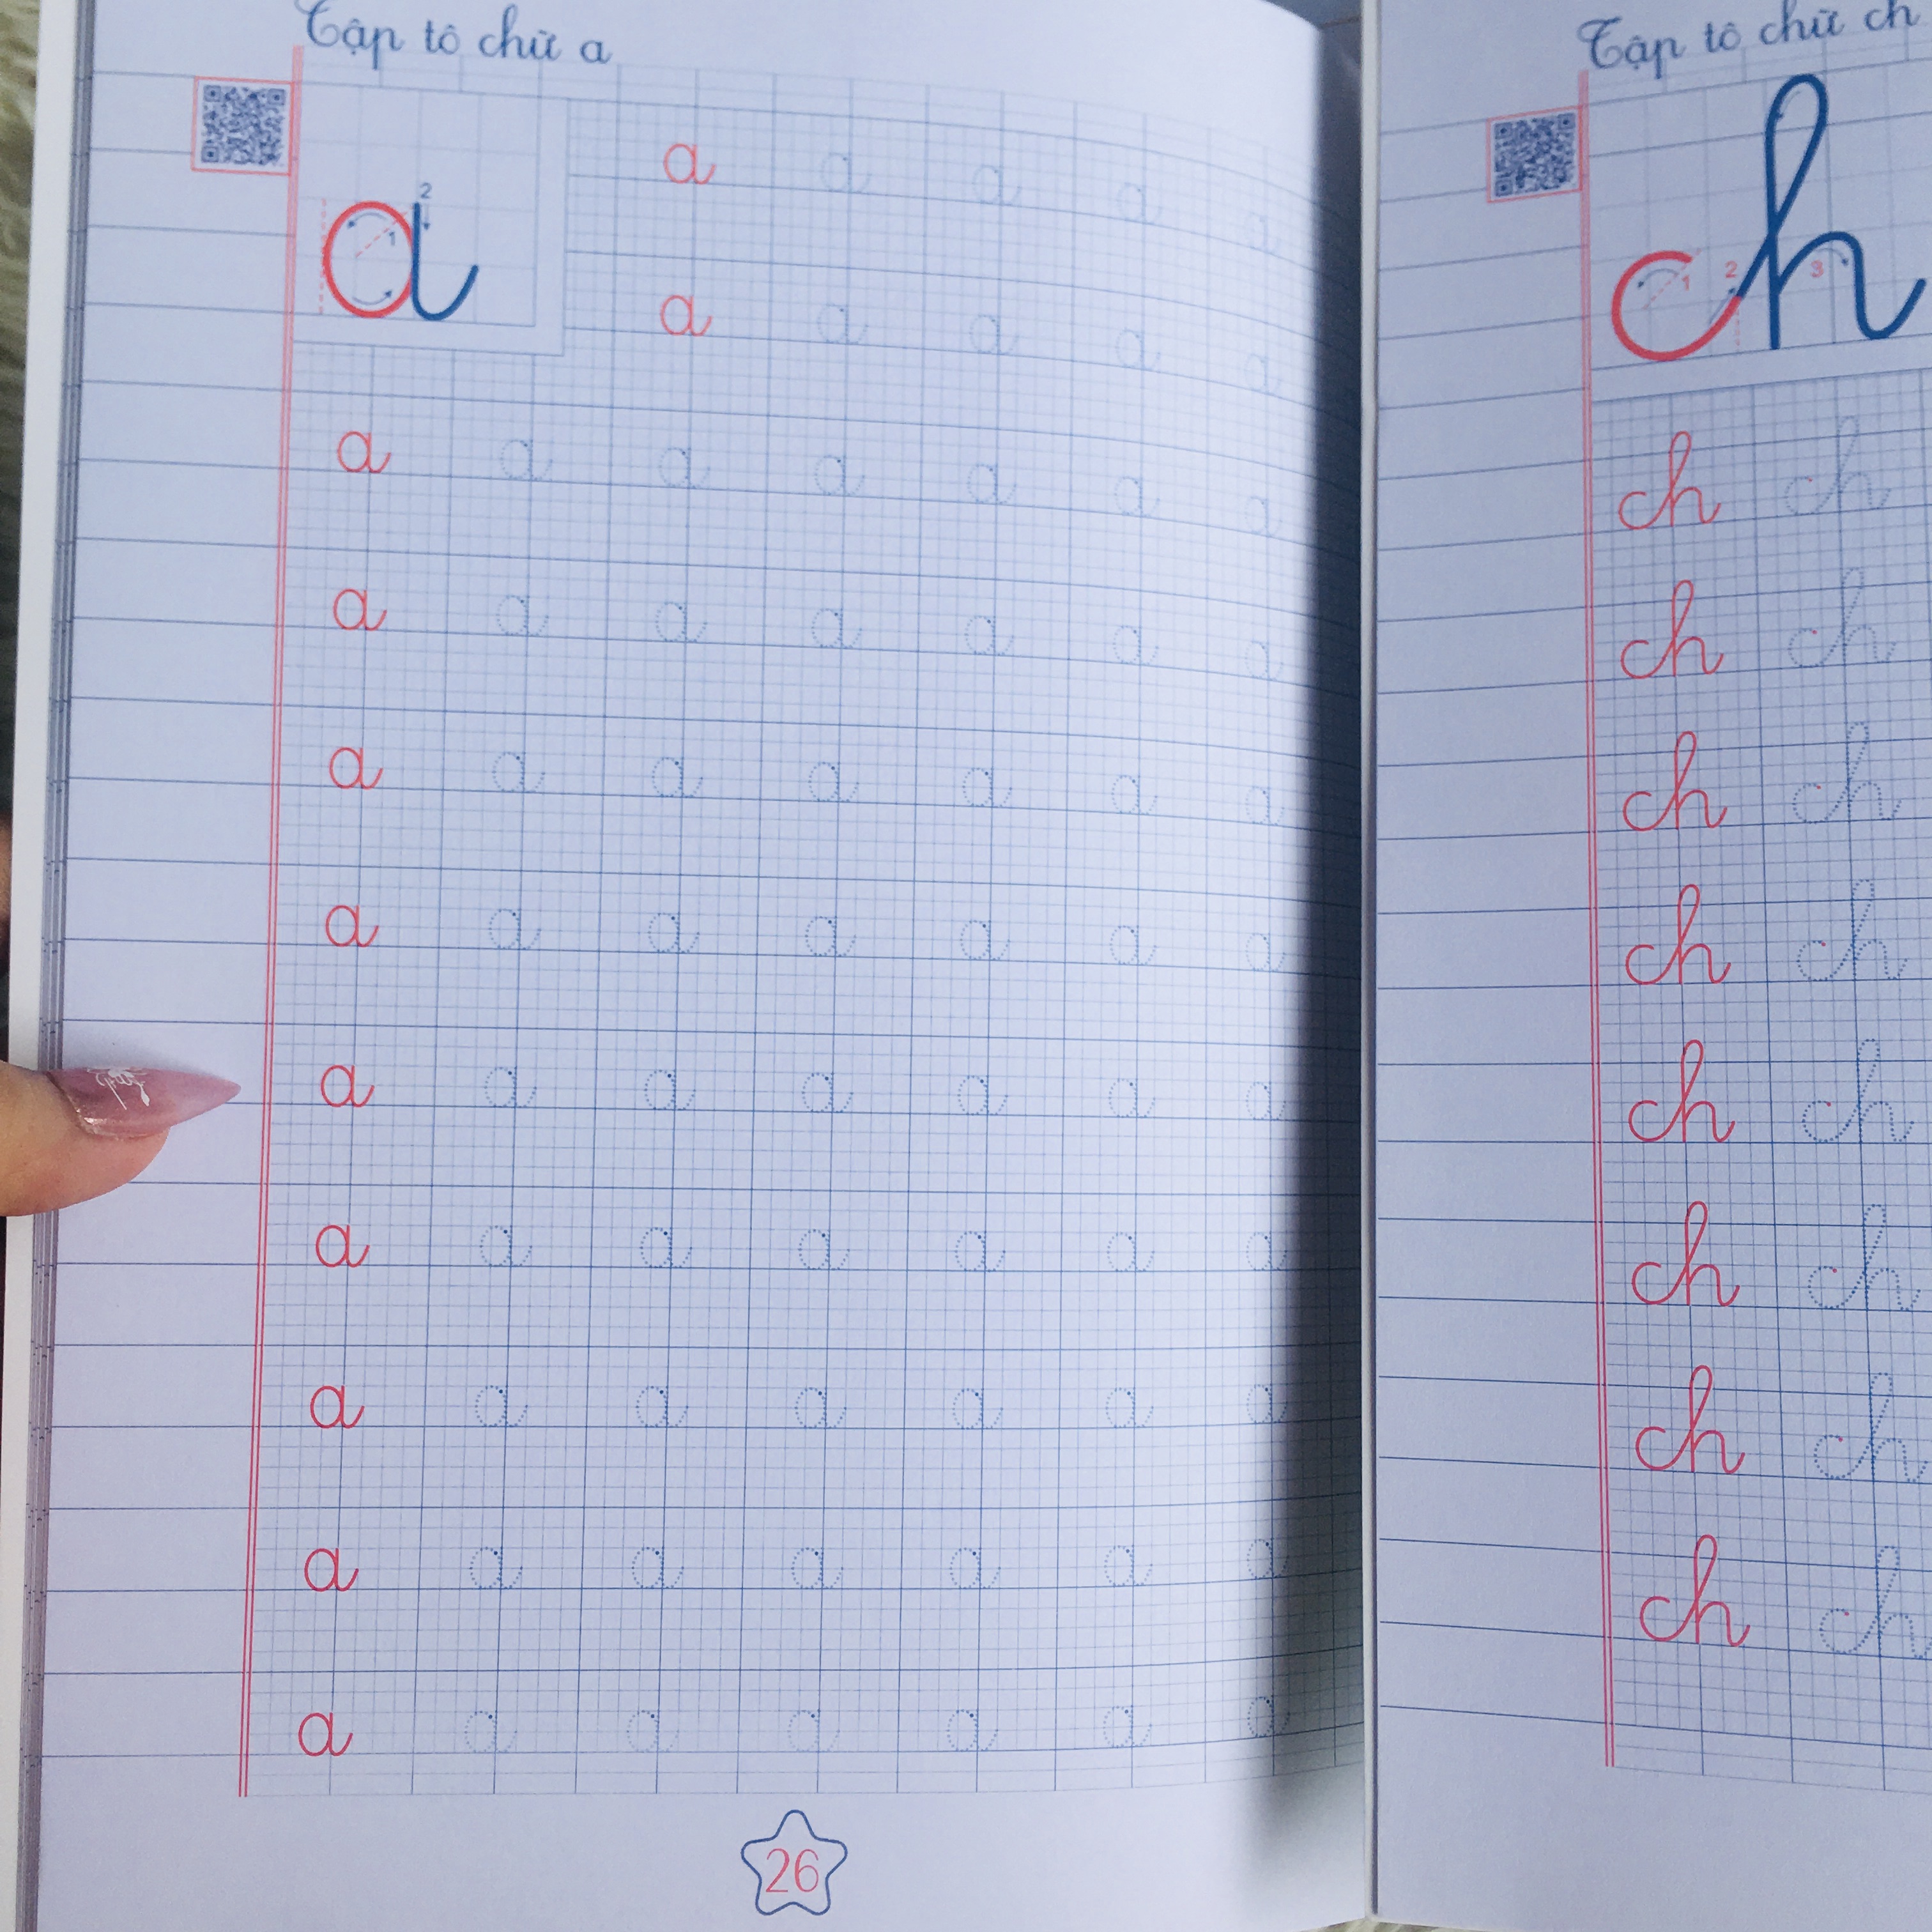 Tập tô chữ a
2
1
a
a a a a a
a a a a a
a a a a a a a
a a a a a a a
a a a a a a a
a a a a a a a
a a a a a a a
a a a a a a a
a a a a a a a
a a a a a a a
a a a a a a a
26
Tập tô chữ ch
1 2 3
ch
ch ch
ch ch
ch ch
ch ch
ch ch
ch ch
ch ch
ch ch